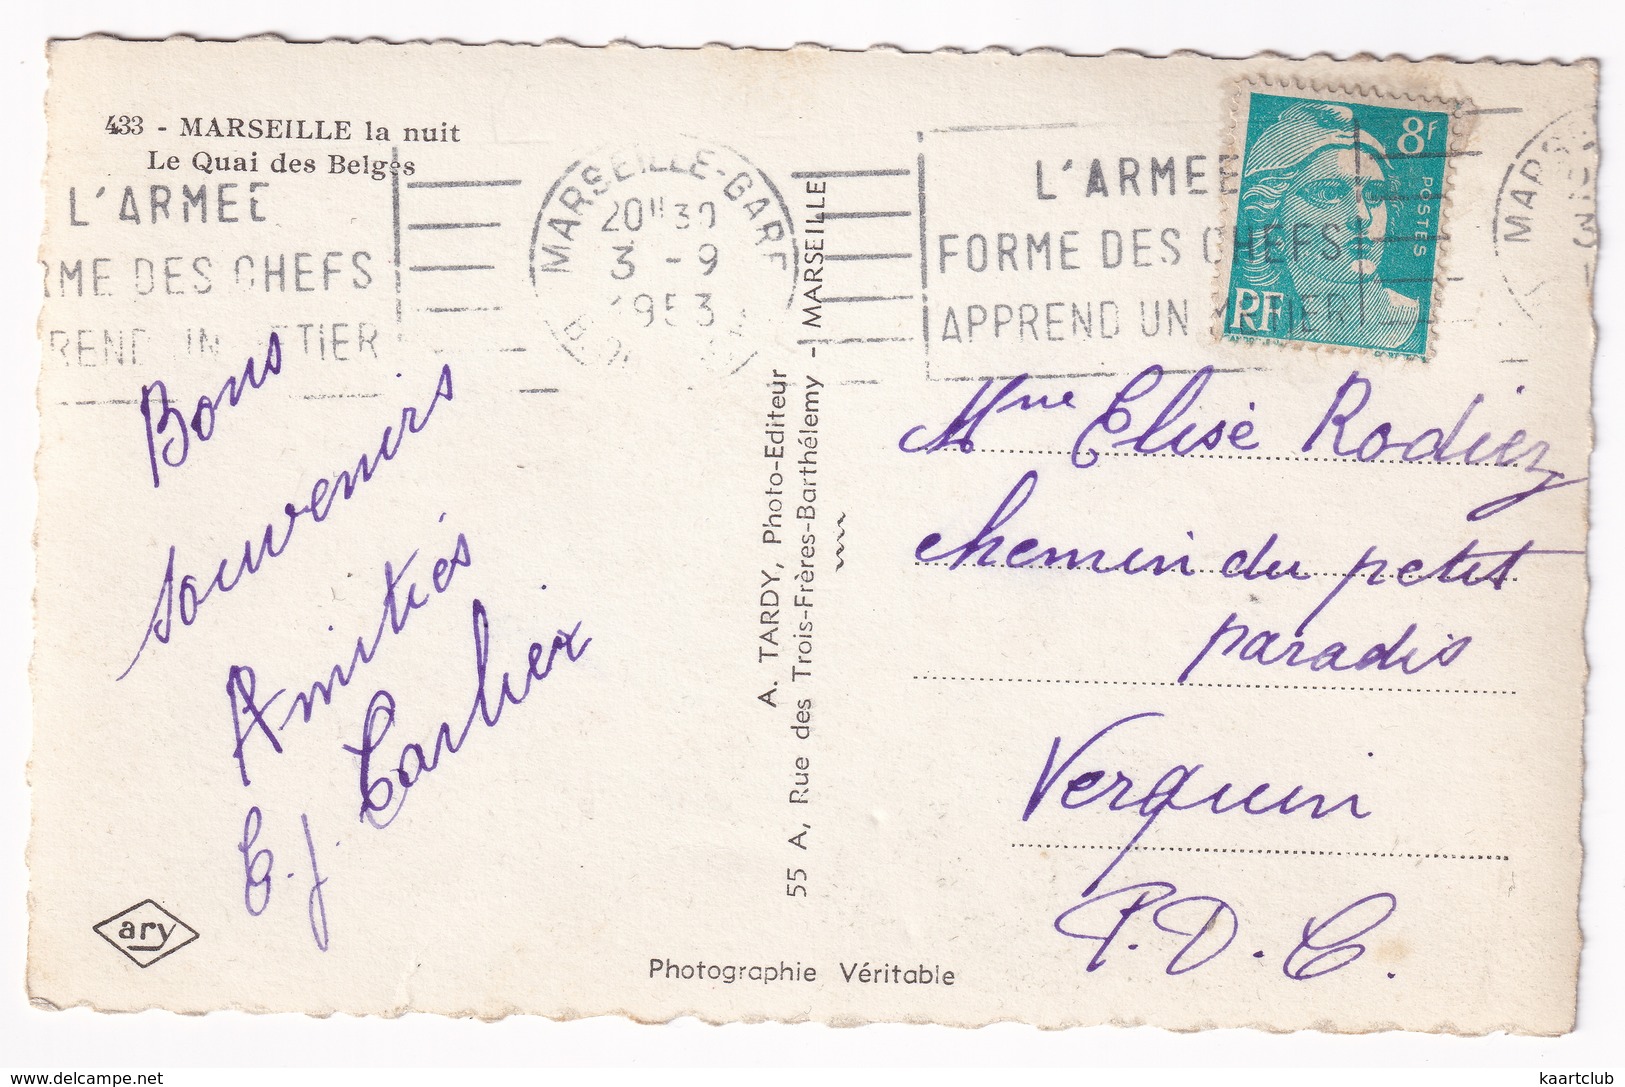 433 - MARSEILLE la nuit
Le Quai des Belges
L'ARMEE
RME DES CHEFS
REND UN TIER
MARSEILLE-GARE
20H30
3 - 9
1953
L'ARMEE
FORME DES CHEFS
APPREND UN METIER
MARS
8F
POSTES
RF
Bons
souvenirs
Amitiés
E. J. Carlier
ary
A. TARDY, Photo-Editeur
55 A, Rue des Trois-Frères-Barthélemy - MARSEILLE
Photographie Véritable
Mme Elisé Rodiez
chemin du petit
paradis
Verquin
P. D. C.
kaartclub
delcampe.net